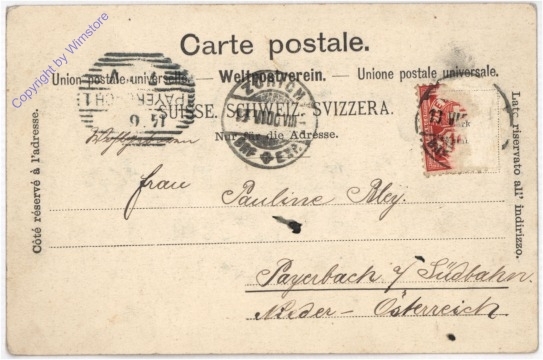 Copyright by Wimstore
Carte postale.
Union postale universelle. — Weltpostverein. — Unione postale universale.
SUISSE. SCHWEIZ. SVIZZERA.
Nur für die Adresse.
Côté réservé à l'adresse.
Lato riservato all' indirizzo.
PAYERBACH
ZÜRICH
BRF EXP.
Frau Pauline Bley.
Payerbach a/ Südbahn.
Nieder-Österreich